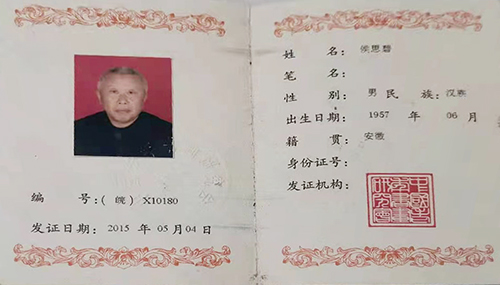 编 号：(皖) X10180
发证日期：2015 年 05月 04日
姓 名：侯思碧
笔 名：
性 别：男 民 族：汉族
出生日期：1957 年 06 月
籍 贯：安徽
身份证号：
发证机构：